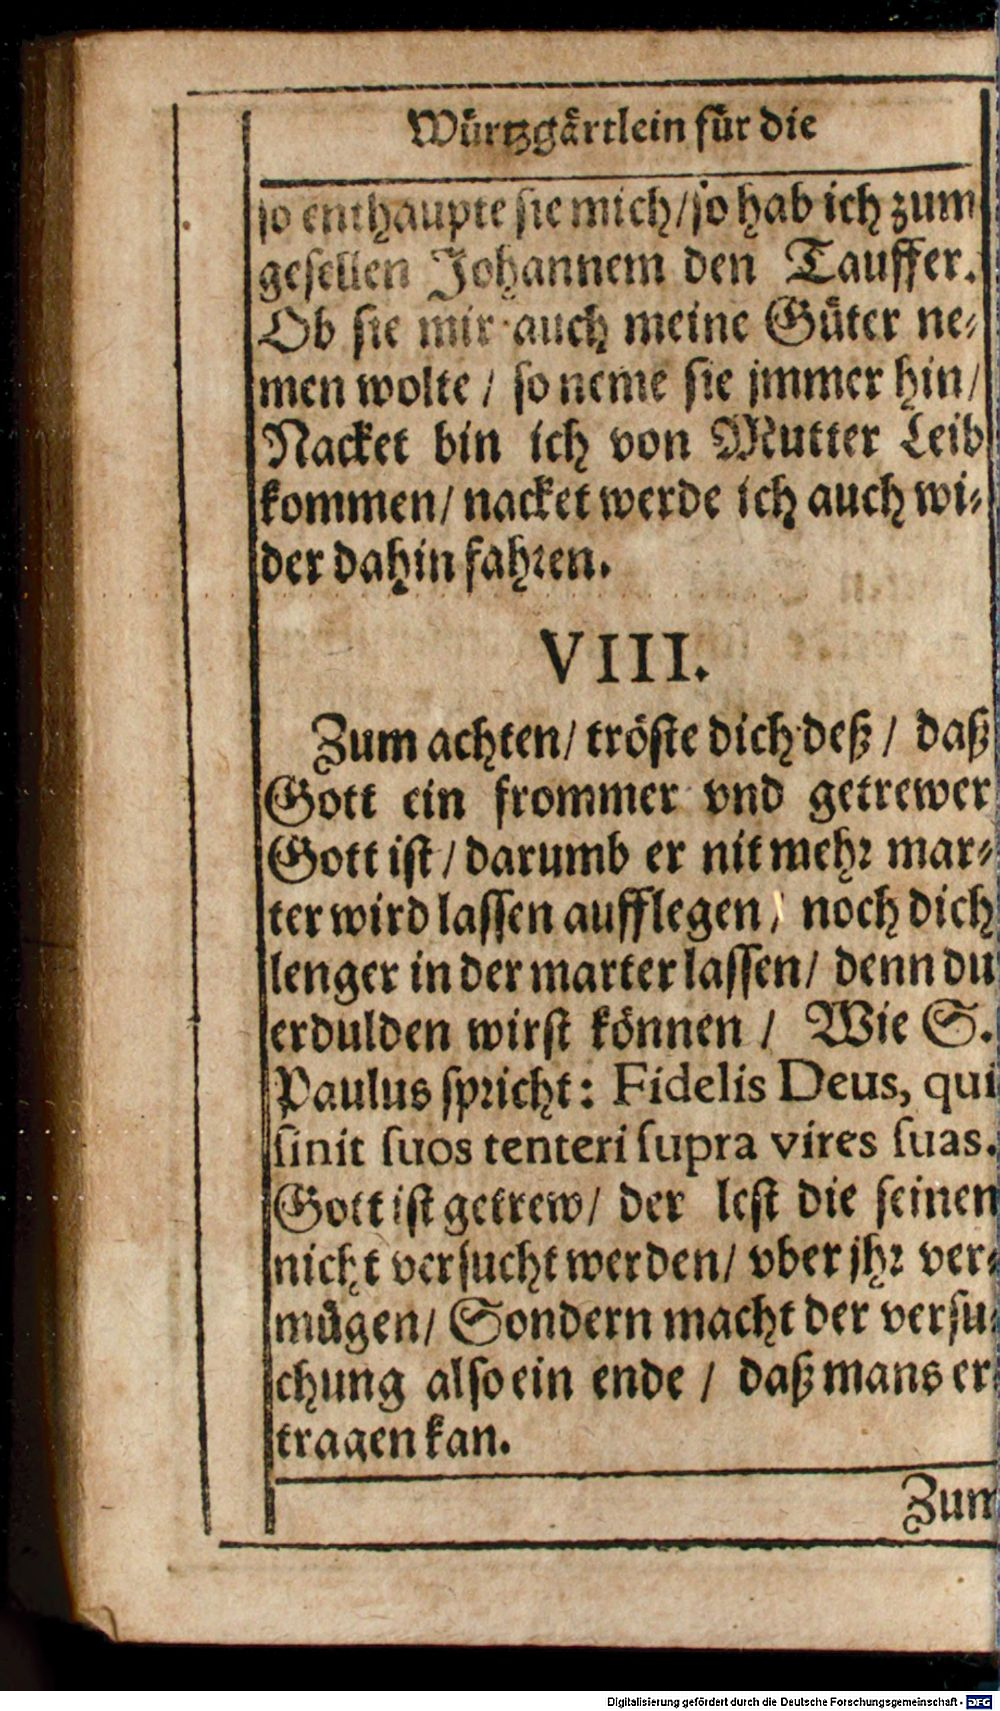 Wuͤrtzgaͤrtlein fuͤr die
so enthaupte sie mich/ so hab ich zum
gesellen Johannem den Tauffer.
Ob sie mir auch meine Guͤter ne-
men wolte / so neme sie jmmer hin/
Nacket bin ich von Mutter Leib
kommen/ nacket werde ich auch wi-
der dahin fahren.
VIII.
Zum achten/ tröste dich deß / daß
Gott ein frommer vnd getrewer
Gott ist / darumb er nit mehr mar-
ter wird lassen aufflegen / noch dich
lenger in der marter lassen/ denn du
erdulden wirst können / Wie S.
Paulus spricht: Fidelis Deus, qui
sinit suos tenteri supra vires suas.
Gott ist getrew/ der lest die seinen
nicht versucht werden/ vber jhr ver-
muͤgen/ Sondern macht der versu-
chung also ein ende / daß mans er
tragen kan.
Zum
Digitalisierung gefördert durch die Deutsche Forschungsgemeinschaft - DFG